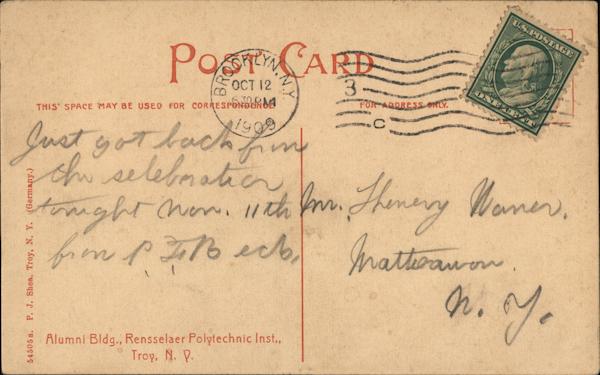 POST CARD
BROOKLYN, N.Y.
OCT 12
6-30 PM
1909
3
C
U.S. POSTAGE
ONE CENT
THIS SPACE MAY BE USED FOR CORRESPONDENCE
FOR ADDRESS ONLY.
Just got back from
the selebration
tonight Mon. 11th
from P
Mr. Henery Warner.
Matteawon
N. Y.
54505 a. P. J. Shea, Troy, N. Y. (Germany.)
Alumni Bldg., Rensselaer Polytechnic Inst.,
Troy, N. Y.